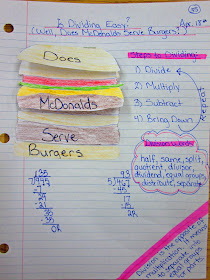 Is Dividing Easy?
(Well, Does McDonalds Serve Burgers?)
Apr. 18th
Does
McDonalds
Serve
Burgers
Steps to Dividing:
1) Divide
2) Multiply
3) Subtract
4) Bring Down
Repeat
Division Words
half, same, split,
quotient, divisor,
dividend, equal groups,
distribute, separate
135
7)945
-7
24
-21
35
-35
0R
93
5)467
-45
2R
Division is the opposite of
multiplication. It means
to separate into
equal groups
or parts.